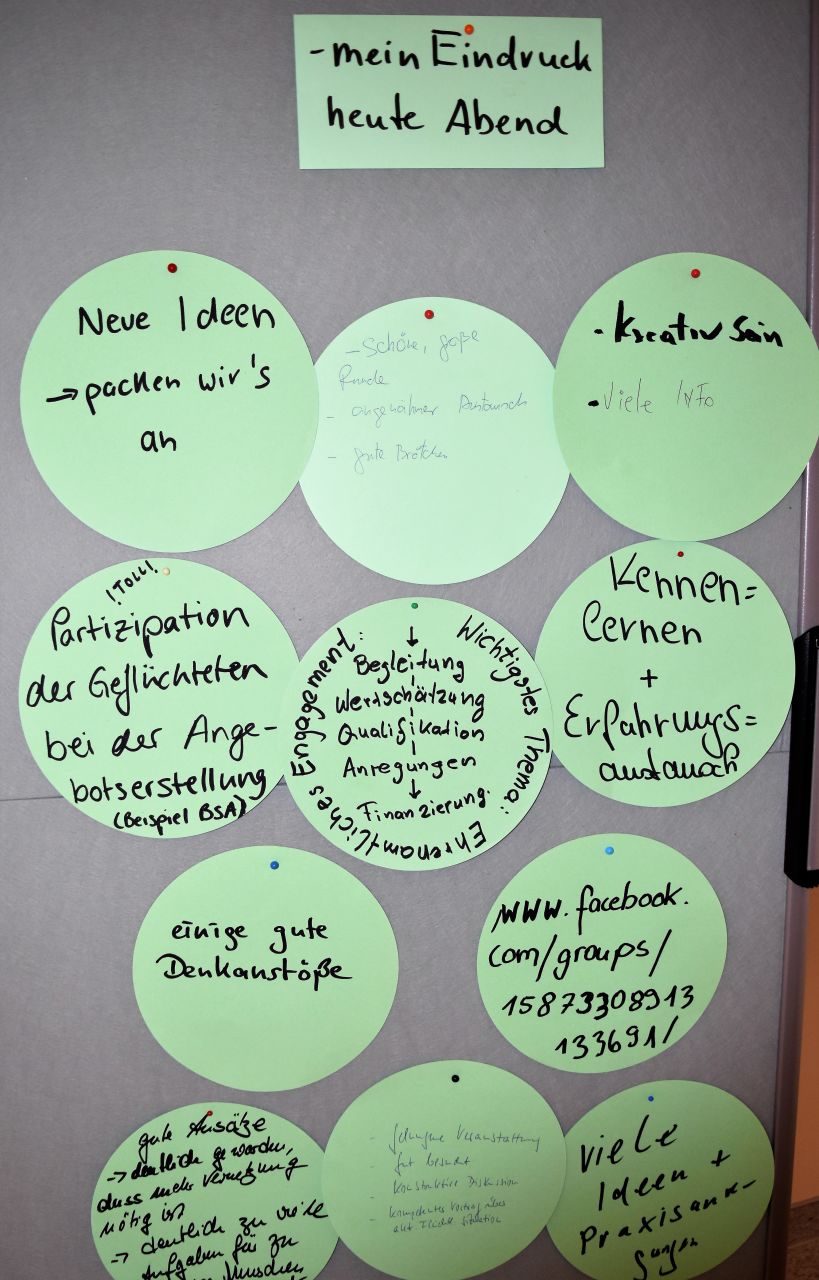 - mein Eindruck
heute Abend
Neue Ideen
→ packen wir's
an
- Schöne, große
Runde
- angenehmer Austausch
- gute Brötchen
- Kreativ Sein
- Viele INFO
!TOLL!
Partizipation
der Geflüchteten
bei der Ange-
botserstellung
(Beispiel BSA)
Wichtigstes Thema: Ehrenamtliches Engagement:
↓
Begleitung
Wertschätzung
Qualifikation
Anregungen
↓
Finanzierung.
Kennen=
lernen
+
Erfahrungs=
austausch
einige gute
Denkanstöße
www.facebook.
com/groups/
15873308913
133691/
gute Ansätze
→ deutlich geworden,
dass mehr Vernetzung
nötig ist
→ deutlich zu viele
Aufgaben für zu
Menschen
- gelungene Veranstaltung
- gut besucht
- konstruktive Diskussion
- kompetenter Vortrag über
akt. Situation
Viele
Ideen +
Praxisanre-
gungen